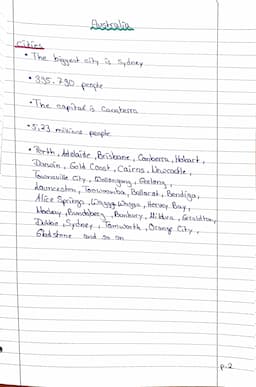 Australia
Cities
• The biggest city is Sydney
• 395.790 people
• The capital is Canaberra
• 5,23 milions people
• Perth, Adelaide, Brisbane, Canberra, Hobart,
Darwin, Gold Coast, Cairns, Newcastle,
Townsville City, Wollongong, Geelong,
Launceston, Toowoomba, Ballarat, Bendigo,
Alice Springs, Wagga Wagga, Hervey Bay,
Mackay, Bundaberg, Bunbury, Mildura, Geraldton,
Dubbo, Sydney, Tamworth, Orange City,
Gladstone and so on
p.2